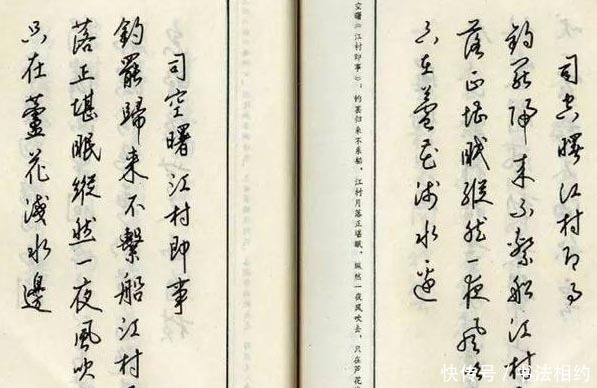 司空曙江村即事
釣罷歸来不繫船江村
落正堪眠縱然一夜風吹
只在蘆花浅水邊
空曙《江村即事》，钓罢归来不系船，江村月落正堪眠，纵然一夜风吹去，只在芦花
司空曙江村即事
釣罷歸来不繫船江村
落正堪眠縱然一夜風吹
只在蘆花淺水邊
快传号 / 书法相约